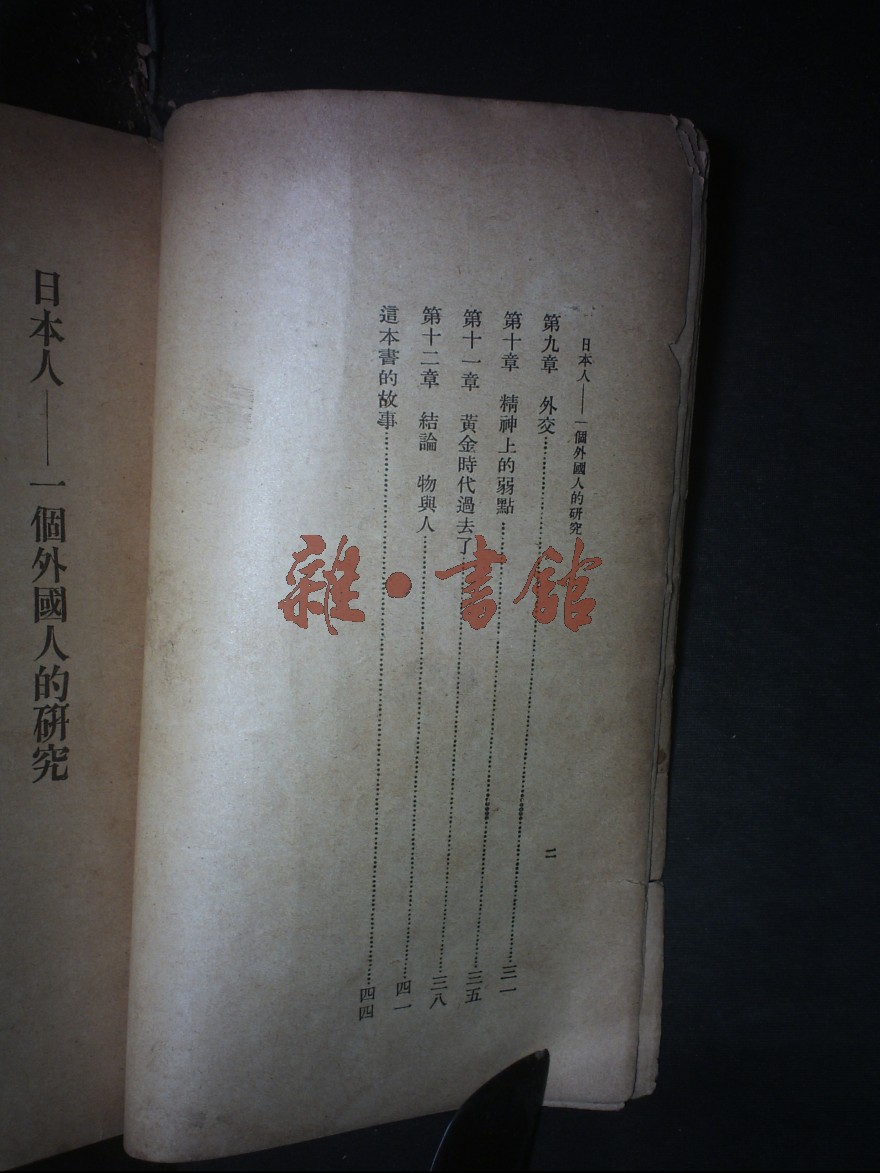 日本人——一個外國人的研究
二
第九章 外交……三一
第十章 精神上的弱點……三五
第十一章 黃金時代過去了……三八
第十二章 結論 物與人……四一
這本書的故事……四四
日本人——一個外國人的研究
雜·書館